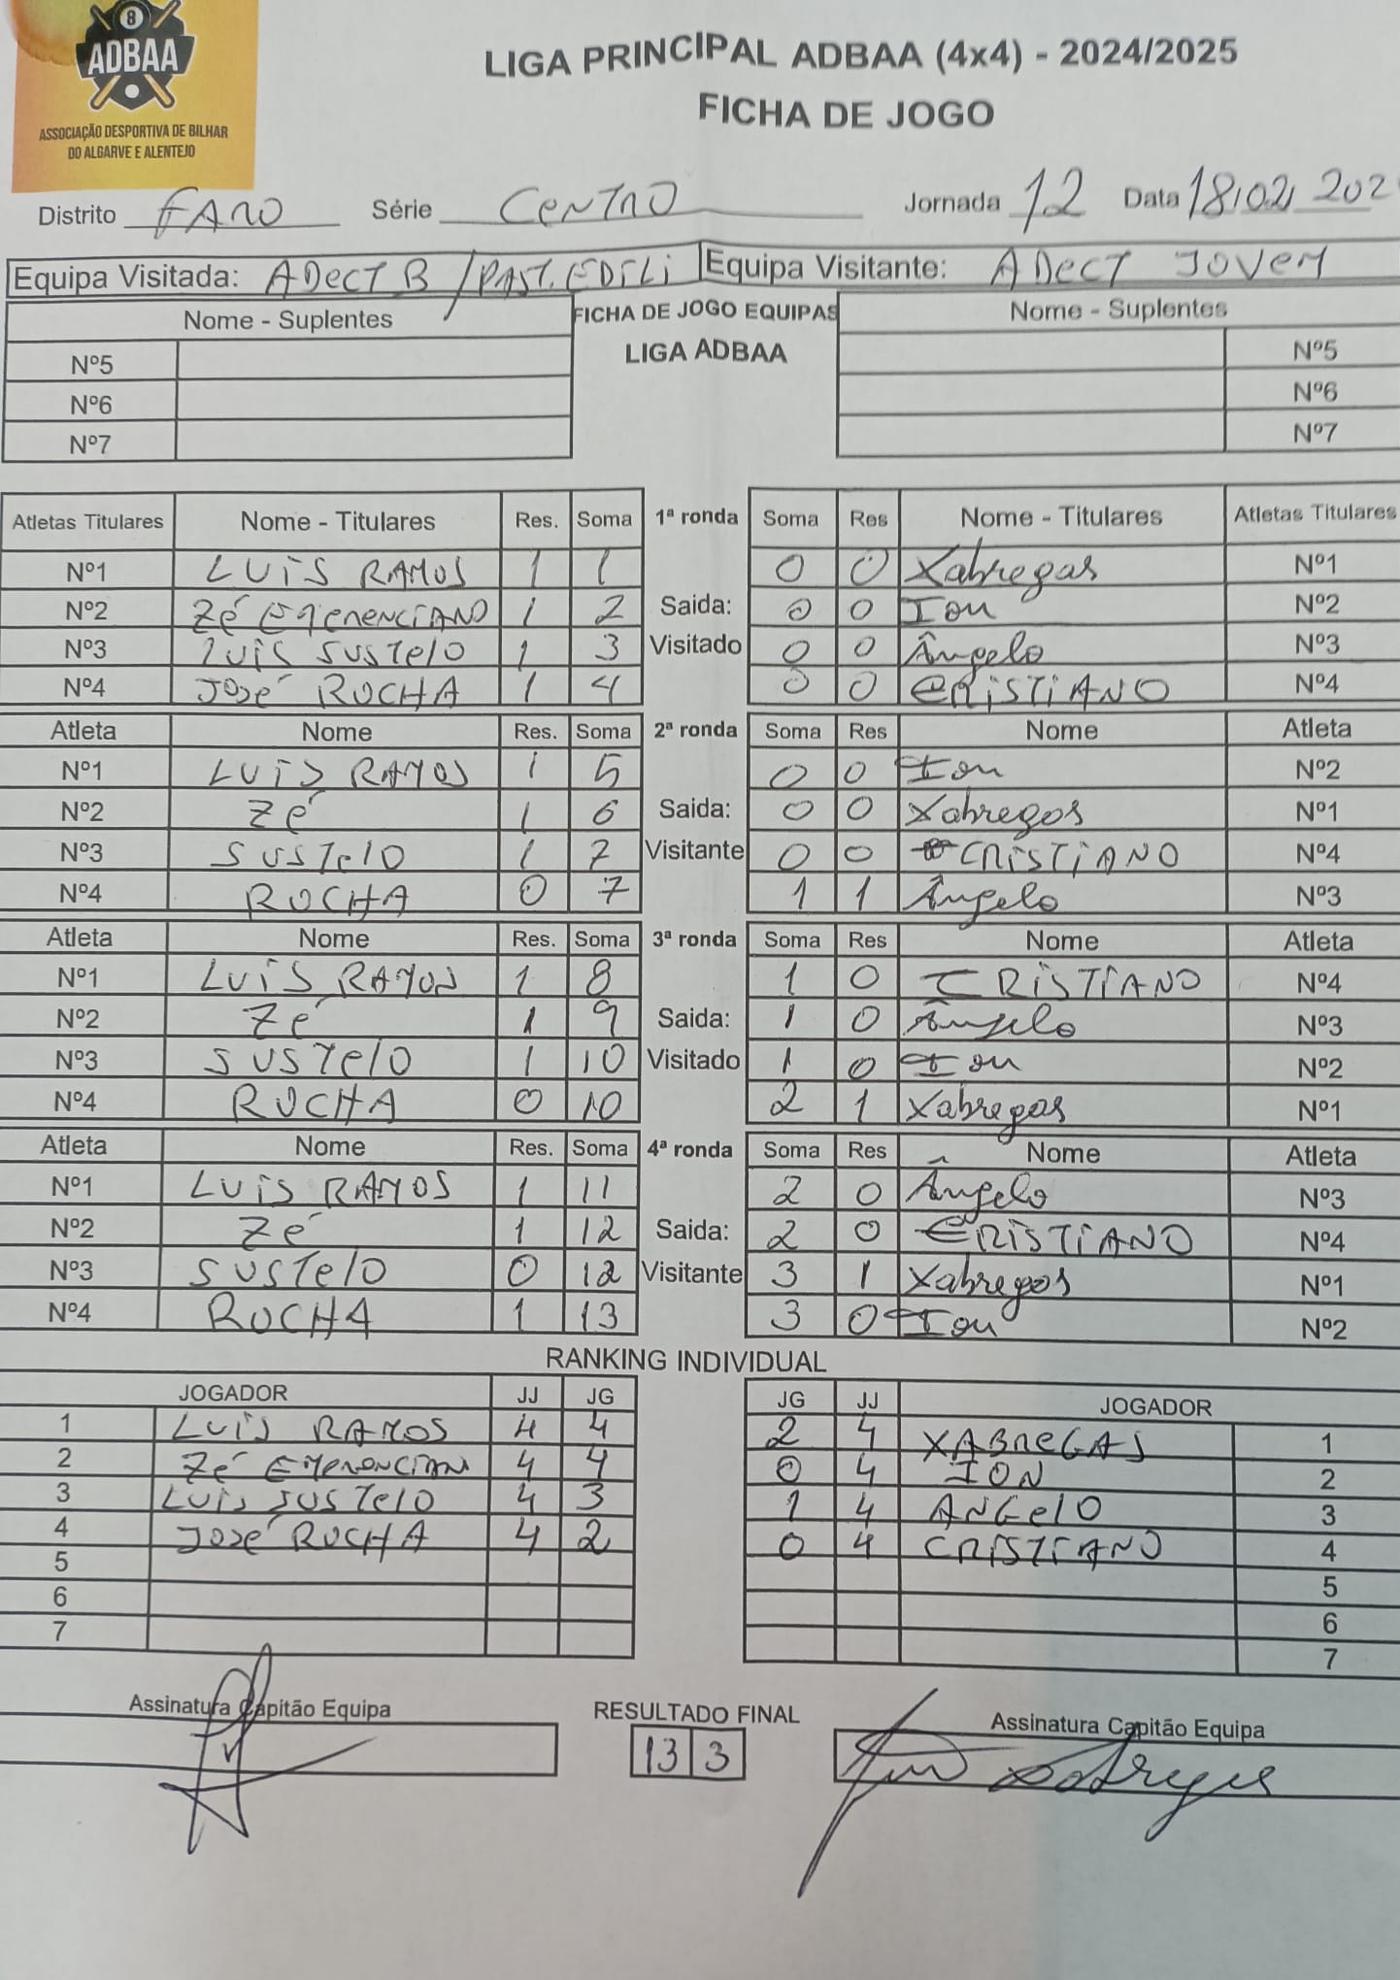 8
ADBAA
ASSOCIAÇÃO DESPORTIVA DE BILHAR
DO ALGARVE E ALENTEJO
LIGA PRINCIPAL ADBAA (4x4) - 2024/2025
FICHA DE JOGO
Distrito FARO Série CENTRO Jornada 12 Data 18/02/202
Equipa Visitada: ADECT B / PAST. EDILI Equipa Visitante: ADECT JOVEM
Nome - Suplentes FICHA DE JOGO EQUIPAS Nome - Suplentes
LIGA ADBAA
Nº5 Nº5
Nº6 Nº6
Nº7 Nº7
Atletas Titulares Nome - Titulares Res. Soma 1ª ronda Soma Res Nome - Titulares Atletas Titulares
Nº1 LUIS RAMOS 1 1 0 0 Xabregas Nº1
Nº2 Zé EMERENCIANO 1 2 Saida: 0 0 Ion Nº2
Nº3 LUIS SUSTELO 1 3 Visitado 0 0 Ângelo Nº3
Nº4 José ROCHA 1 4 0 0 CRISTIANO Nº4
Atleta Nome Res. Soma 2ª ronda Soma Res Nome Atleta
Nº1 LUIS RAMOS 1 5 0 0 Ion Nº2
Nº2 Zé 1 6 Saida: 0 0 Xabregas Nº1
Nº3 SUSTELO 1 7 Visitante 0 0 CRISTIANO Nº4
Nº4 ROCHA 0 7 1 1 Ângelo Nº3
Atleta Nome Res. Soma 3ª ronda Soma Res Nome Atleta
Nº1 LUIS RAMOS 1 8 1 0 CRISTIANO Nº4
Nº2 Zé 1 9 Saida: 1 0 Ângelo Nº3
Nº3 SUSTELO 1 10 Visitado 1 0 Ion Nº2
Nº4 ROCHA 0 10 2 1 Xabregas Nº1
Atleta Nome Res. Soma 4ª ronda Soma Res Nome Atleta
Nº1 LUIS RAMOS 1 11 2 0 Ângelo Nº3
Nº2 Zé 1 12 Saida: 2 0 CRISTIANO Nº4
Nº3 SUSTELO 0 12 Visitante 3 1 Xabregas Nº1
Nº4 ROCHA 1 13 3 0 Ion Nº2
RANKING INDIVIDUAL
JOGADOR JJ JG JG JJ JOGADOR
1 LUIS RAMOS 4 4 2 4 XABREGAS 1
2 Zé EMERENCIAN 4 4 0 4 ION 2
3 LUIS SUSTELO 4 3 1 4 ANGELO 3
4 José ROCHA 4 2 0 4 CRISTIANO 4
5 5
6 6
7 7
Assinatura Capitão Equipa RESULTADO FINAL Assinatura Capitão Equipa
13 3